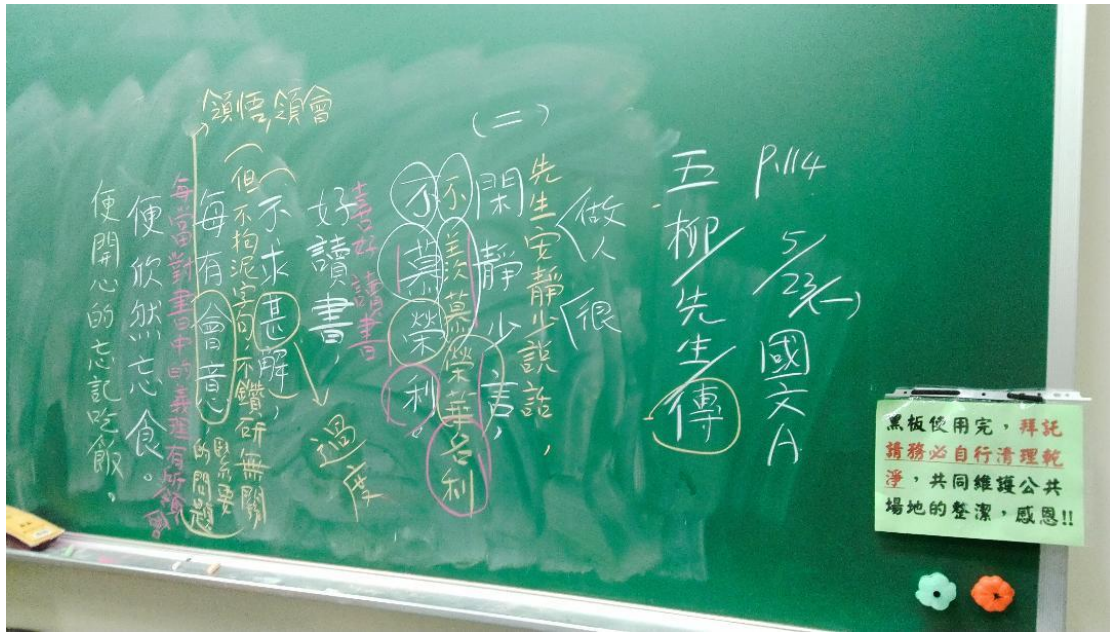 P.114
5/23(一)
國文A
五柳先生傳
(二)
做人
很
先生安靜少說話,
閑靜少言,
不羨慕榮華名利
不慕榮利。
喜好讀書
好讀書,
不求甚解,
過度
(但不拘泥字句不鑽研無關
緊要
的問題)
領悟,領會
每有會意
每當對書中的義理有所領會
便欣然忘食。
便開心的忘記吃飯。
黑板使用完,拜託
請務必自行清理乾
淨,共同維護公共
場地的整潔,感恩!!